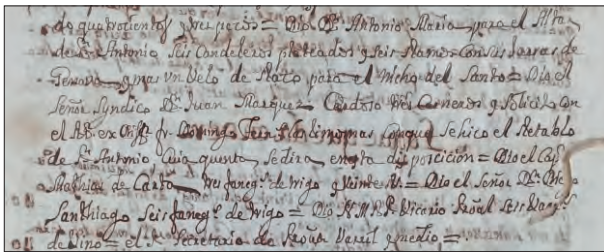 de quatrocientos y tres pesos = Dio Dn. Antonio Maria para el Alta
de Sn. Antonio Seis Candeleros plateados y seis Ramos con sus Jarras de
y mas un Velo de para el Nicho del Santo = Dio el
Señor Syndico Dn. Juan Marquez Cardoso tres Carneros y solicitó con
el Domingo limosnas con que se hiço el Retablo
de Sn. Antonio Cuia quenta se dira en otra dispocicion = Dio el Cap.
Mathias de tres faneg.s de trigo y Veinte = Dio el Señor Dn.
Santhiago Seis faneg.s de trigo = Dio N. M. R. P. Vicario Seis
de Vino = el Secretario de y medio =